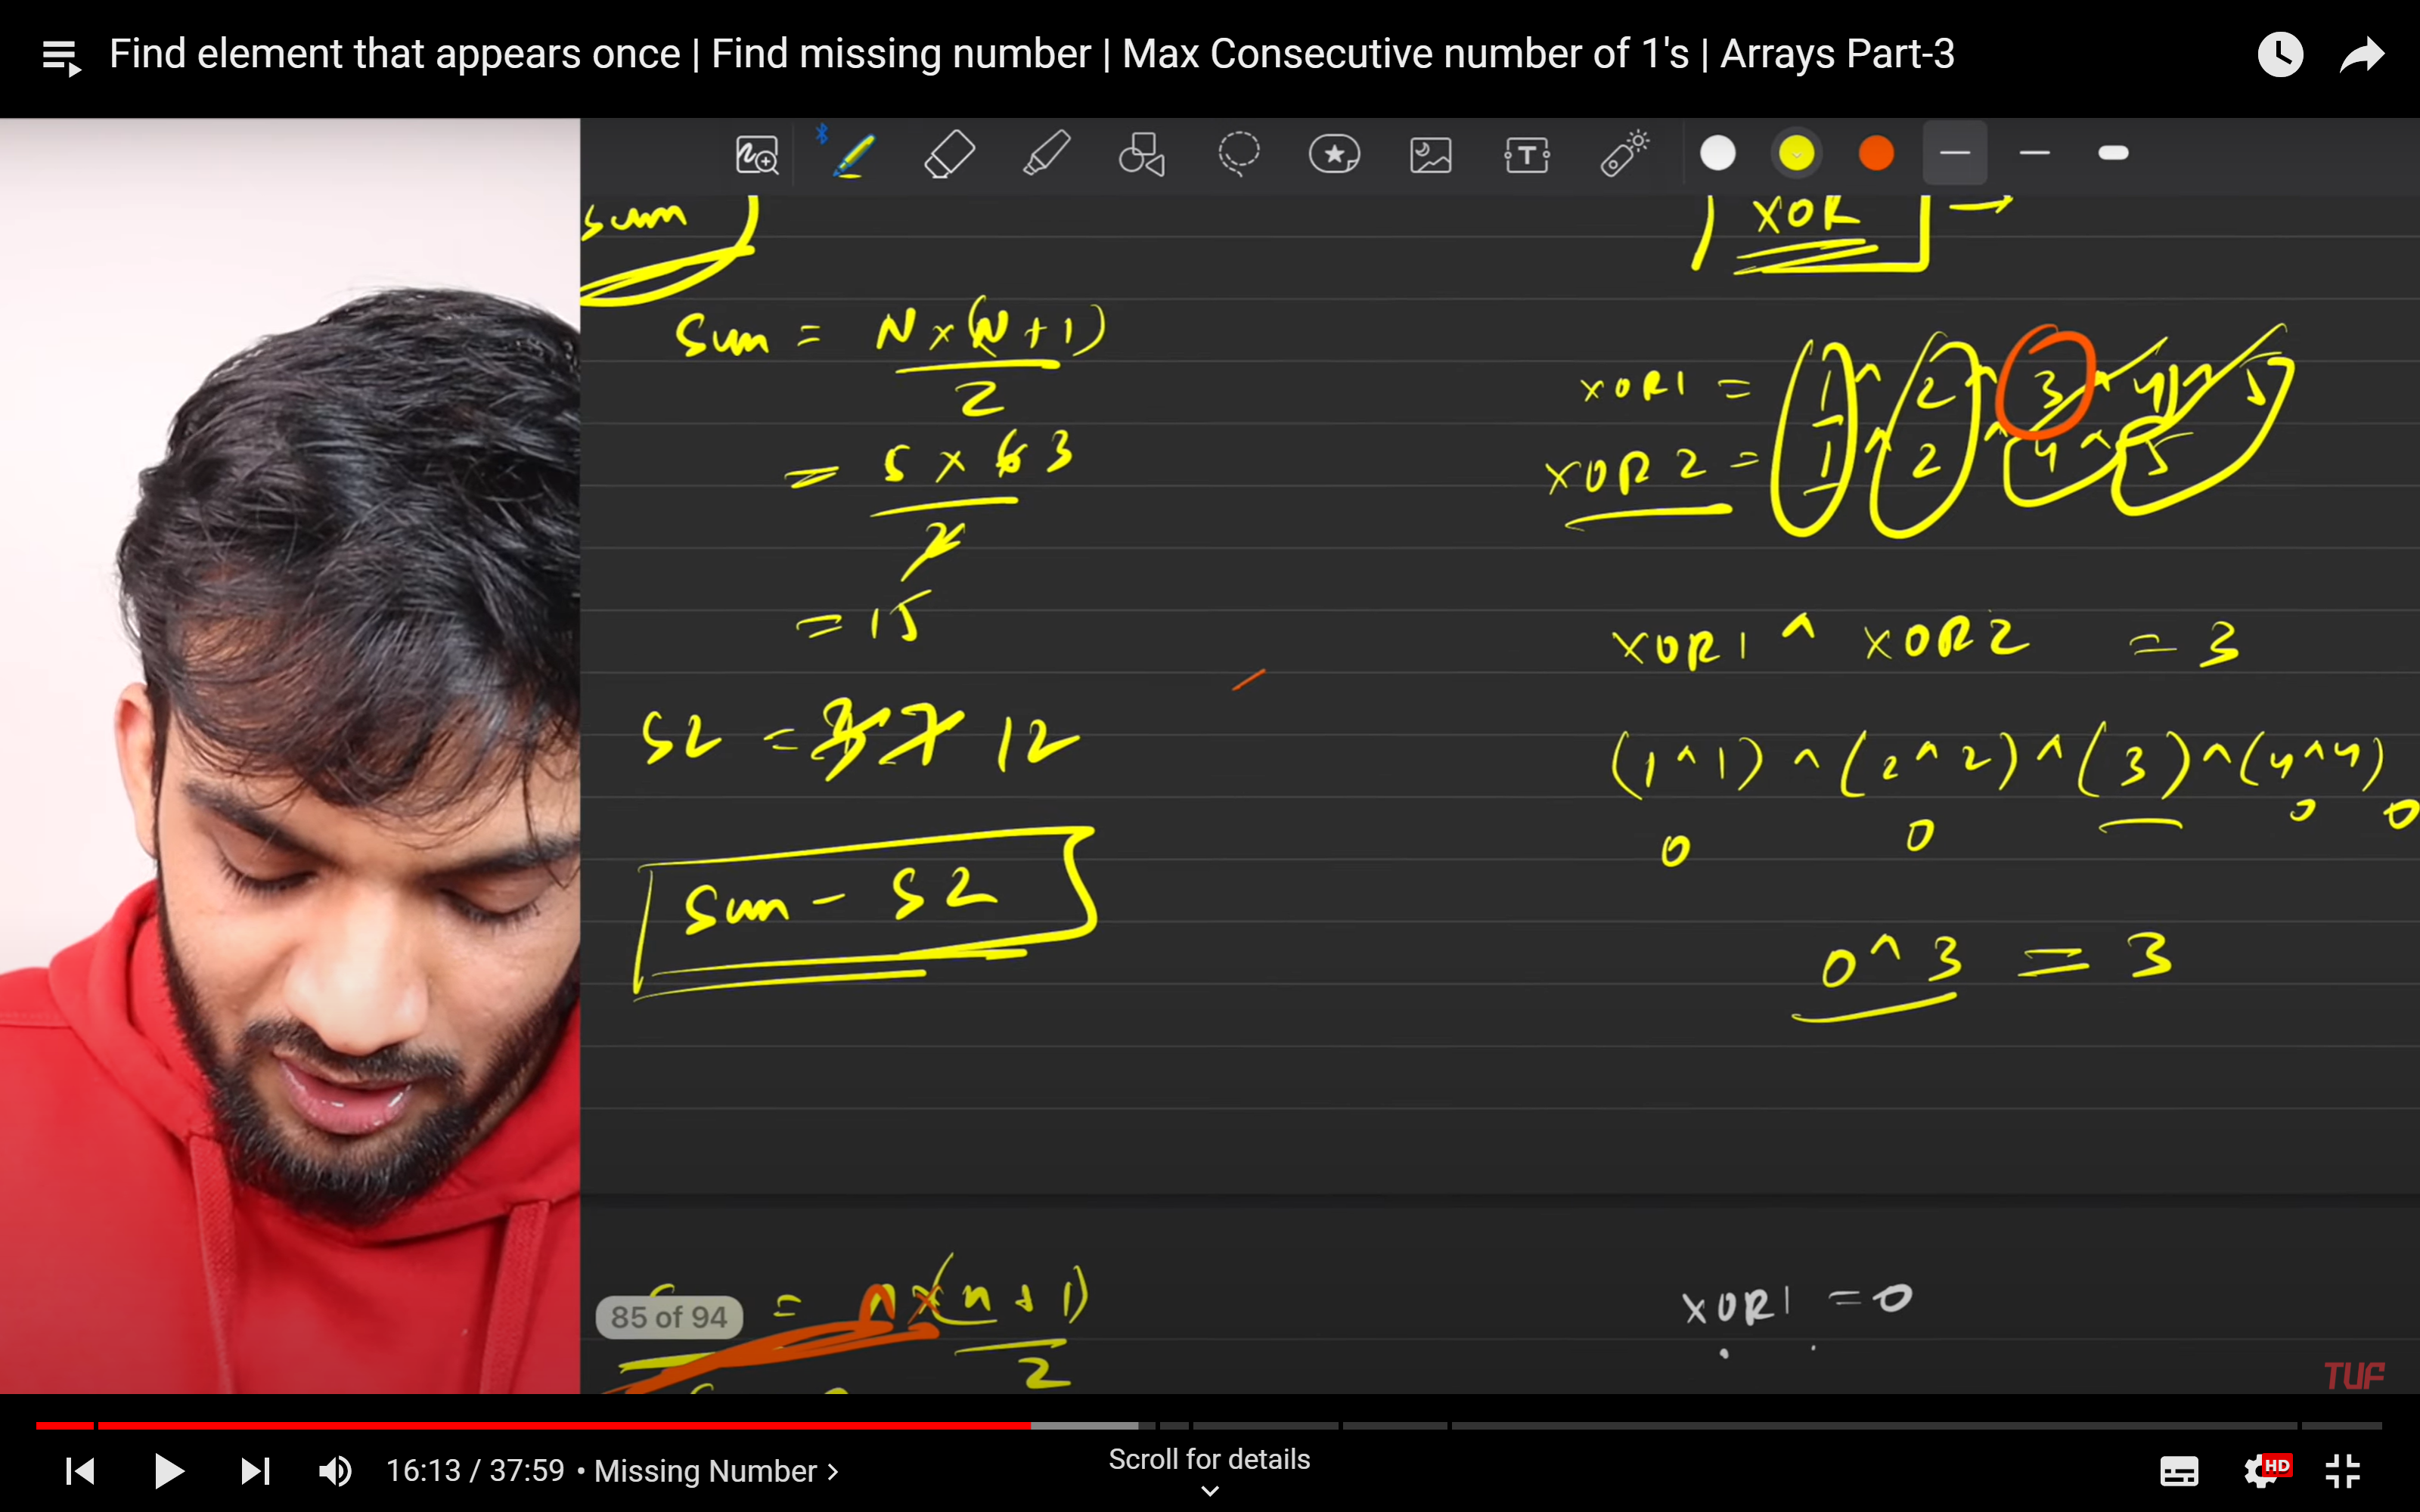 Find element that appears once | Find missing number | Max Consecutive number of 1's | Arrays Part-3
T
sum
XOR →
Sum = N x (N + 1)
2
= 5 x 6 3
2
= 15
S2 = 12
Sum - S2
XOR1 = 1 ^ 2 ^ 3 ^ 4 ^ 5
XOR 2 = 1 ^ 2 ^ 4 ^ 5
XOR1 ^ XOR2 = 3
(1^1) ^ (2^2) ^ (3) ^ (4^4)
0 0 0 0
0^3 = 3
85 of 94
= n x (n + 1)
2
XOR1 = 0
TUF
16:13 / 37:59 • Missing Number >
Scroll for details
HD